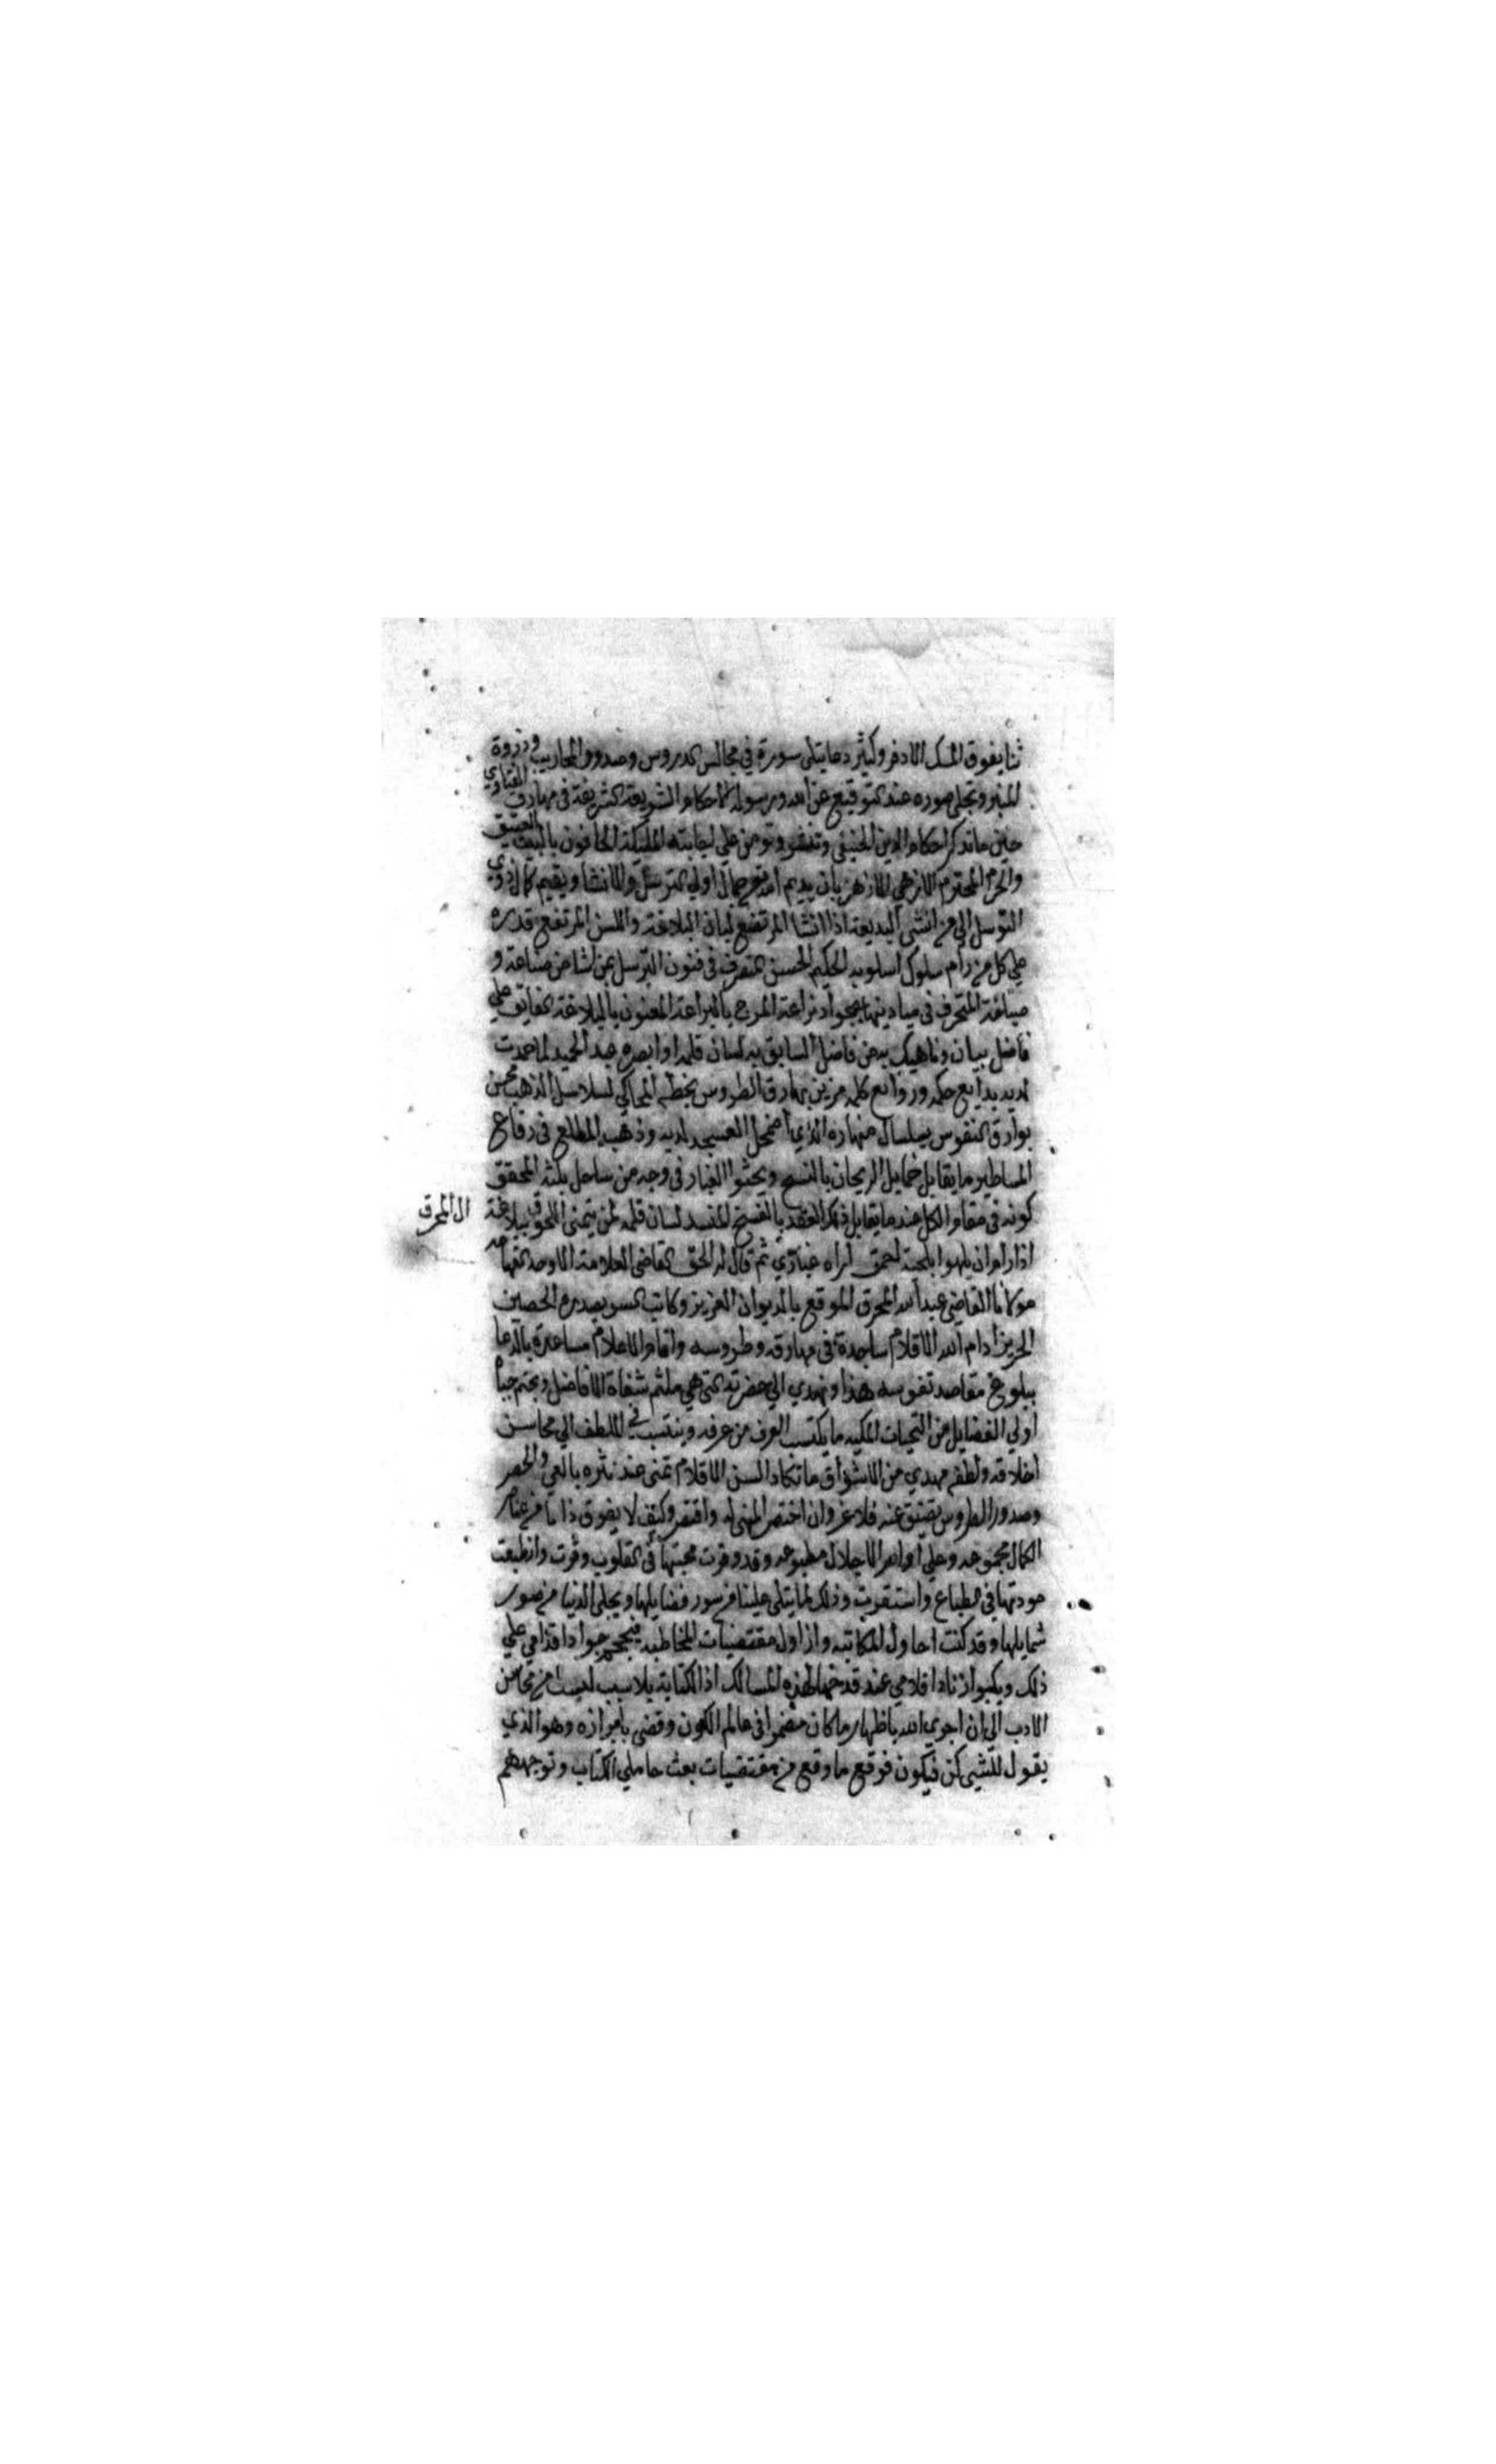 ثنا يفوق المسك الاذفر وكثير دعا يتلى سورة في مجالس الدروس وصدور المحاريب وذروة
المنبر وتجلى صوره عند التوقيع عن الله ورسوله للاحكام الشريعة الشريفة في مهارق الفتاوي
حين ما تذكر احكام الدين الحنيفي وتنشر وتومن على اجابته المليكة الحافون بالبيت العتيق
والحرم المحترم الازهي الازهر بان يديم الله تع جمال اولي الترسل والانشا ويقيم كمال ذوي
التوسل الي من انشى البديعة اذا انشا المرتضع لبان البلاغة واللسن المرتفع قدره
علي كل من رام سلوك اسلوبه الحكيم الحسن المتصرف في فنون الترسل عن لشا من صناعة و
صياغة المتحرف في ميادينها بجواد براعة المرح باليراعة المعنون بالبلاغة الفايق علي
فاضل بيان وناهيك به من فاضل السابق به لسان قلمه اوابصره عبد الحميد لما حمدت
لديه بدايع حكمه وروايع كلمه مزين مهارق الطروس بخطه المحاكي لسلاسل الذهب محسن
بوارق النفوس بسلسال منهاره الذي اضمحل العسجد لديه وذهب المطلع في رقاع
المساطير ما يقابل خمايل الريحان بالنسخ ويحثوا الغبار في وجه من ساجل بثلثه المحقق
كونه في مقام الكل عند ما يقابل ذلك العقد بالفسخ المنسد لسان قلمه لمن يتمنى اللحوق ببلاغته
اذا رام ان يلهوا بلمحة لعمق اراه غباري ثم قال له الحق القاضي العلامة الاوحد الفهامه
مولانا القاضي عبد الله المحرق الموقع بالديوان العزيز وكاتب السر بصدره الحصين
الحريز ادام الله الاقلام ساجدة في مهارقه وطروسه واقام الاعلام مساعدة بالدعا
ببلوغ مقاصد نفوسه هذا ونهدي الي حضرته التي هي ملثم شفاة الافاضل ومجتم جباه
اولي الفضايل من التحيات المكيه ما يكتسب العرف من عرفه وينتسب في اللطف الي محاسن
اخلاقه ولطفه مهدي من الاشواق ما تكاد السن الاقلام تمنى عند نثره بالعي والحصر
وصدور الطروس تضيق عنه فلا غرو ان اختصر المنهي له واقتصر وكيف لا يفوق ذاتا من عناصر
الكمال مجموعه وعلي اوامر الاجلال مطبوعه وقد وقرت محبتها في القلوب وقرت وانطبعت
مودتها في الطباع واستقرت وذلك لما يتلى علينا من سور فضايلها ويجلى لدينا من صور
شمايلها وقد كنت احاول المكاتبه وازاول مقتضيات المخاطبه فيحجم جواد اقدامي علي
ذلك ويكبوا زناد اقلامي عند قدحها لهذه المسالك اذ الكتابة بلا سبب ليست من محاسن
الادب الى ان اجري الله باظهار ما كان مضمرا في عالم الكون وقضى بابرازه وهو الذي
يقول للشيء كن فيكون فوقع ما وقع من مقتضيات بعث حاملي الكتاب وتوجههم
ال المحرق